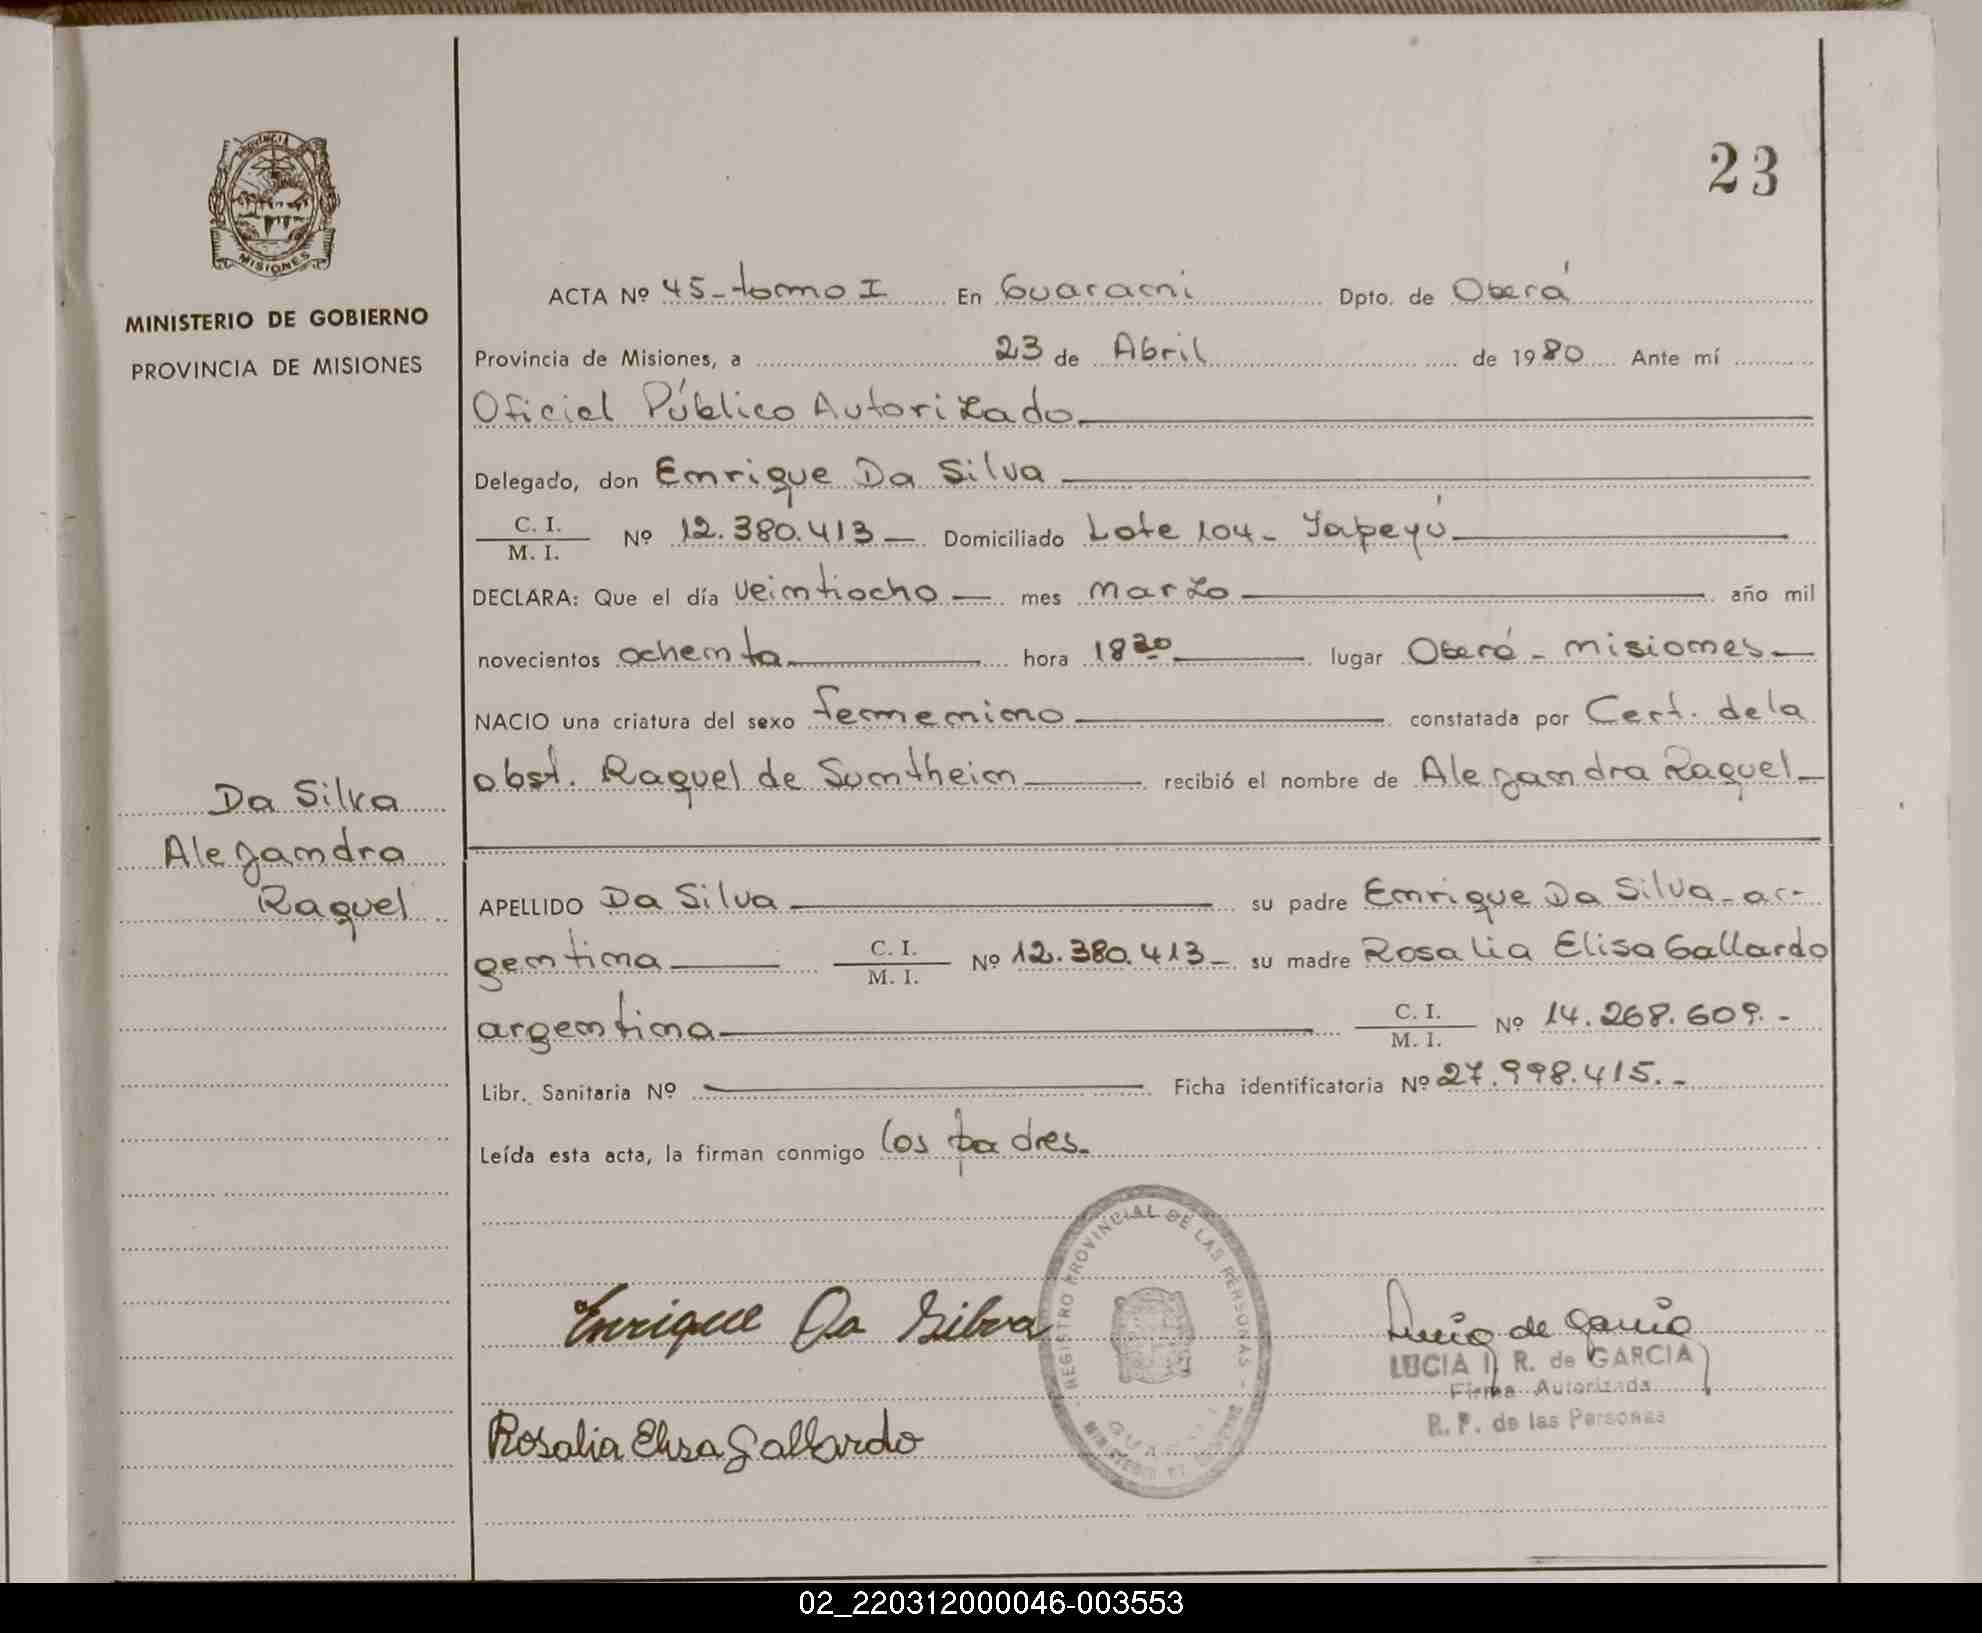 23
PROVINCIA
MISIONES
MINISTERIO DE GOBIERNO
PROVINCIA DE MISIONES
Da Silva
Alejandra
Raquel
ACTA Nº 45-tomo I En Guarani Dpto. de Oberá
Provincia de Misiones, a 23 de Abril de 1980 Ante mí
Oficial Público Autorizado
Delegado, don Enrique Da Silva
C. I. / M. I. Nº 12.380.413 Domiciliado Lote 104 - Yapeyú
DECLARA: Que el día veintiocho mes marzo año mil
novecientos ochenta hora 18 lugar Oberá - misiones
NACIO una criatura del sexo femenino constatada por Cert. de la
obst. Raquel de Suntheim recibió el nombre de Alejandra Raquel
APELLIDO Da Silva su padre Enrique Da Silva - ar-
gentina C. I. / M. I. Nº 12.380.413 su madre Rosalia Elisa Gallardo
argentina C. I. / M. I. Nº 14.268.609.-
Libr. Sanitaria Nº Ficha identificatoria Nº 27.998.415.-
Leída esta acta, la firman conmigo los padres.
REGISTRO PROVINCIAL DE LAS PERSONAS
Enrique Da Silva
Lucia de Garcia
LUCIA I. R. de GARCIA
Firma Autorizada
R. P. de las Personas
Rosalia Elisa Gallardo
02_220312000046-003553